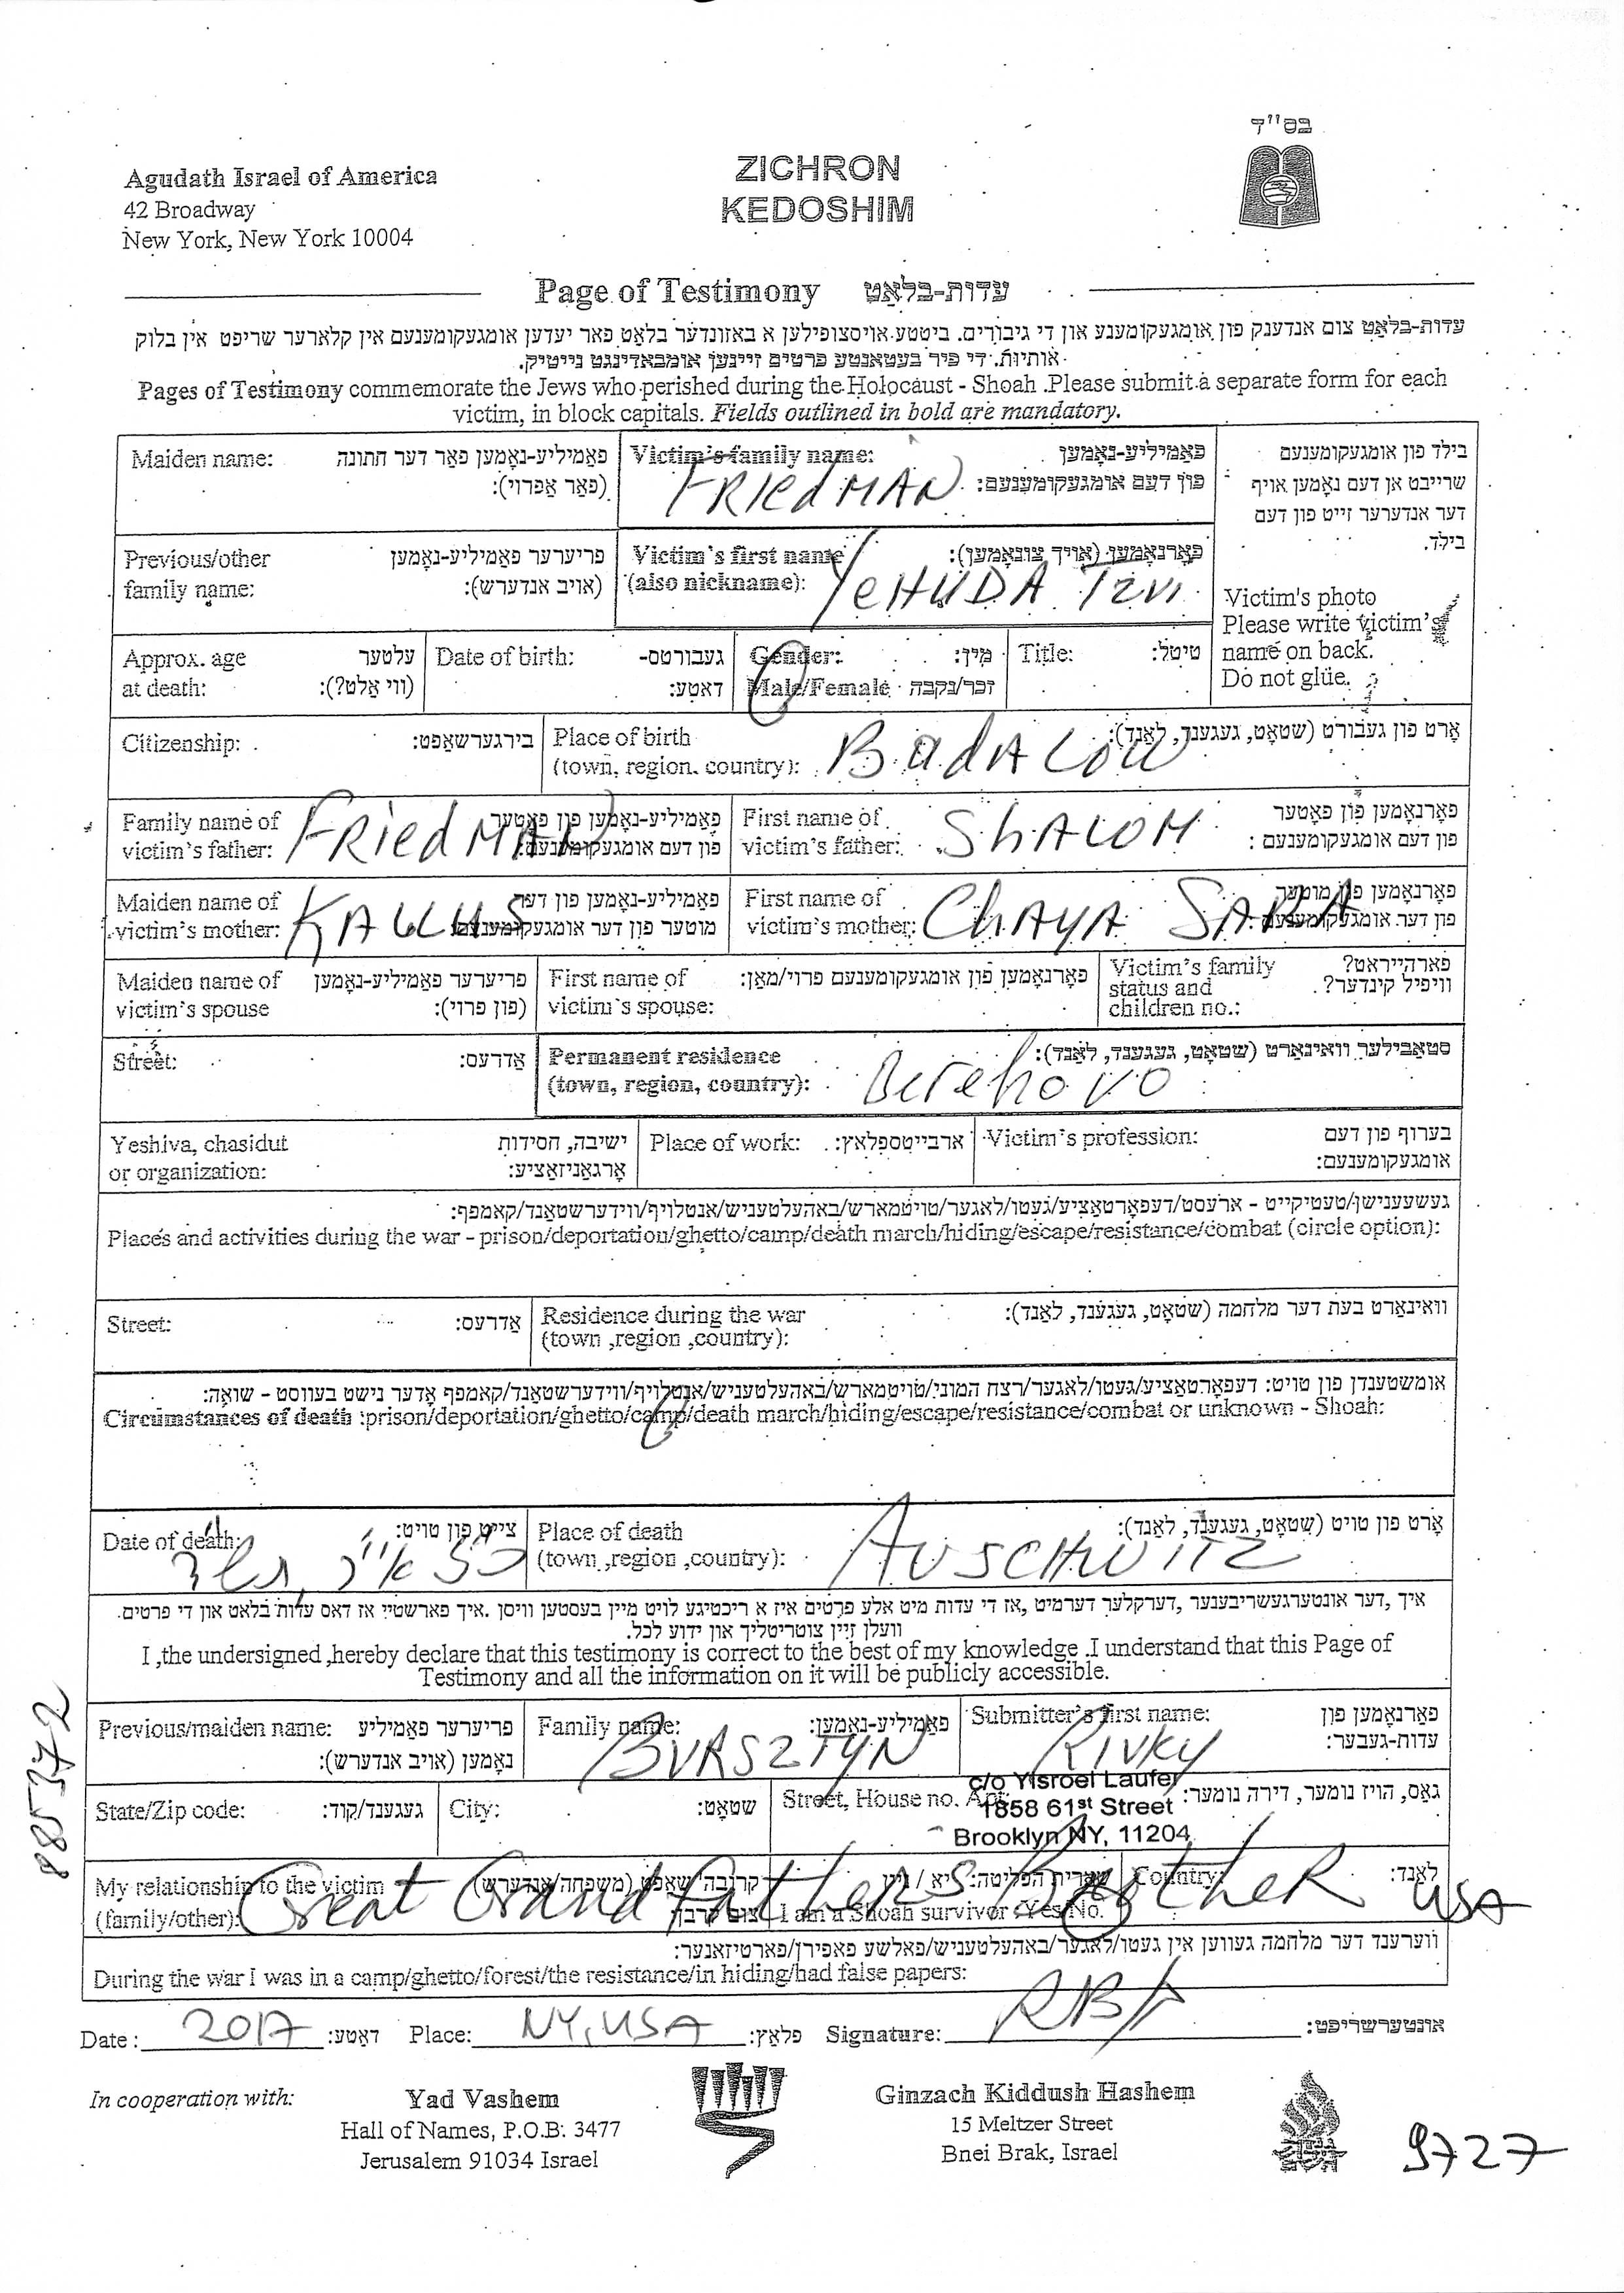 בס"ד
Agudath Israel of America
42 Broadway
New York, New York 10004
ZICHRON
KEDOSHIM
Page of Testimony עדות-בלאַט
עדות-בלאַט צום אנדענק פון אומגעקומענע און די גיבורים. ביטע אויסצופילען א באזונדער בלאט פאר יעדען אומגעקומענעם אין קלארער שריפט אין בלוק
אותיות. די פיר בעטאנטע פרטים זיינען אומבאדינגט נייטיק.
Pages of Testimony commemorate the Jews who perished during the Holocaust - Shoah .Please submit a separate form for each
victim, in block capitals. Fields outlined in bold are mandatory.
Maiden name: פאַמיליע-נאָמען פאר דער חתונה
(פאר אפרוי):
Victim's family name: פאַמיליע-נאָמען
פון דעם אומגעקומענעם:
FRIEDMAN
בילד פון אומגעקומענעם
שרייבט אן דעם נאָמען אויף
דער אנדערער זייט פון דעם
בילד.
Previous/other פריערער פאַמיליע-נאָמען
family name: (אויב אנדערש):
Victim's first name פאָרנאָמען (אויך צונאָמען):
(also nickname): YEHUDA TZVI
Victim's photo
Please write victim's
name on back.
Do not glue.
Approx. age עלטער
at death: (ווי אַלט?):
Date of birth: געבורטס-
דאַטע:
Gender: מין:
Male/Female זכר/נקבה
Title: טיטל:
Citizenship: בירגערשאַפט:
Place of birth אָרט פון געבורט (שטאָט, געגענד, לאַנד):
(town, region, country): BADALOW
Family name of פאַמיליע-נאָמען פון פאָטער
victim's father: פון דעם אומגעקומענעם:
FRIEDMAN
First name of פאָרנאָמען פון פאטער
victim's father: פון דעם אומגעקומענעם:
SHALOM
Maiden name of פאַמיליע-נאָמען פון דער
victim's mother: מוטער פון דער אומגעקומענעם:
First name of פאָרנאָמען פון מוטער
victim's mother: פון דער אומגעקומענעם:
CHAYA SARA
Maiden name of פריערער פאַמיליע-נאָמען
victim's spouse (פון פרוי):
First name of פאָרנאָמען פון אומגעקומענעם פרוי/מאַן:
victim's spouse:
Victim's family פארהייראט?
status and וויפיל קינדער?
children no.:
Street: אַדרעס:
Permanent residence סטאַבילער וואוינאָרט (שטאָט, געגענד, לאַנד):
(town, region, country): Berehovo
Yeshiva, chasidut ישיבה, חסידות
or organization: אָרגאַניזאַציע:
Place of work: ארבייטספלאַץ:
Victim's profession: בערוף פון דעם
אומגעקומענעם:
געשעענישן/טעטיקייט - ארעסט/דעפּאָרטאַציע/געטו/לאגער/טויטמארש/באהעלטעניש/אנטלויף/ווידערשטאַנד/קאמפף:
Places and activities during the war - prison/deportation/ghetto/camp/death march/hiding/escape/resistance/combat (circle option):
Street: אַדרעס:
Residence during the war וואוינאָרט בעת דער מלחמה (שטאָט, געגענד, לאַנד):
(town ,region ,country):
אומשטענדן פון טויט: דעפּאָרטאַציע/געטו/לאגער/רצח המוני/טויטמארש/באהעלטעניש/אנטלויף/ווידערשטאַנד/קאמפף אָדער נישט בעוווסט - שואה:
Circumstances of death :prison/deportation/ghetto/camp/death march/hiding/escape/resistance/combat or unknown - Shoah:
Date of death: צייט פון טויט:
Place of death אָרט פון טויט (שטאָט, געגענד, לאַנד):
(town ,region ,country): AUSCHWITZ
איך ,דער אונטערגעשריבענער ,דערקלער דערמיט ,אז די עדות מיט אלע פרטים איז א ריכטיגע לויט מיין בעסטען וויסן .איך פארשטיי אז דאס עדות בלאט און די פרטים
וועלן זיין צוטריטליך און ידוע לכל.
I ,the undersigned ,hereby declare that this testimony is correct to the best of my knowledge .I understand that this Page of
Testimony and all the information on it will be publicly accessible.
Previous/maiden name: פריערער פאַמיליע
נאָמען (אויב אנדערש):
Family name: פאַמיליע-נאָמען:
BURSZTYN
Submitter's first name: פאָרנאָמען פון
עדות-געבער:
RIVKY
State/Zip code: געגענד/קוד:
City: שטאָט:
Street, House no. Apt. גאַס, הויז נומער, דירה נומער:
c/o Yisroel Laufer
1858 61st Street
Brooklyn NY, 11204
My relationship to the victim קרובה'שאַפט (משפחה/אנדערש)
(family/other): Great Grandfathers Brother
I am a Shoah survivor :Yes/No.
Country: לאַנד:
USA
ווערענד דער מלחמה געווען אין געטו/לאַגער/באהעלטעניש/פאלשע פאפירן/פארטיזאנער:
During the war I was in a camp/ghetto/forest/the resistance/in hiding/had false papers:
Date: 2017 דאַטע: Place: NY, USA פלאַץ: Signature: אונטערשריפט:
In cooperation with:
Yad Vashem
Hall of Names, P.O.B. 3477
Jerusalem 91034 Israel
Ginzach Kiddush Hashem
15 Meltzer Street
Bnei Brak, Israel
9727
885372